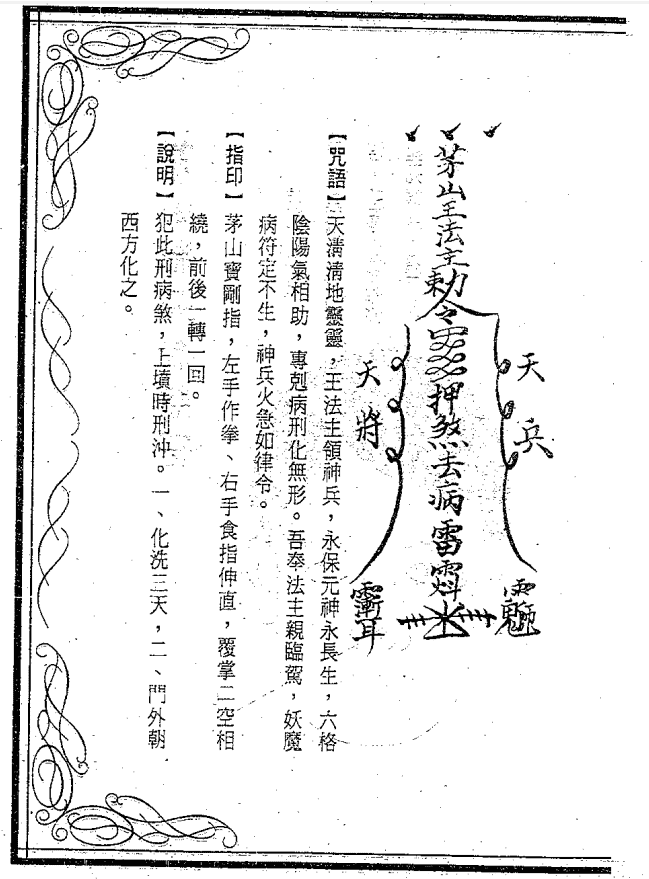 茅山王法主勅令
押煞去病雷
天兵
天將
【咒語】天清清地靈靈，王法主領神兵，永保元神永長生，六格
陰陽氣相助，專剋病刑化無形。吾奉法主親臨駕，妖魔
病符定不生，神兵火急如律令。
【指印】茅山寶剛指，左手作拳、右手食指伸直，覆掌二空相
繞，前後一轉一回。
【說明】犯此刑病煞，上墳時刑沖。一、化洗三天，二、門外朝
西方化之。